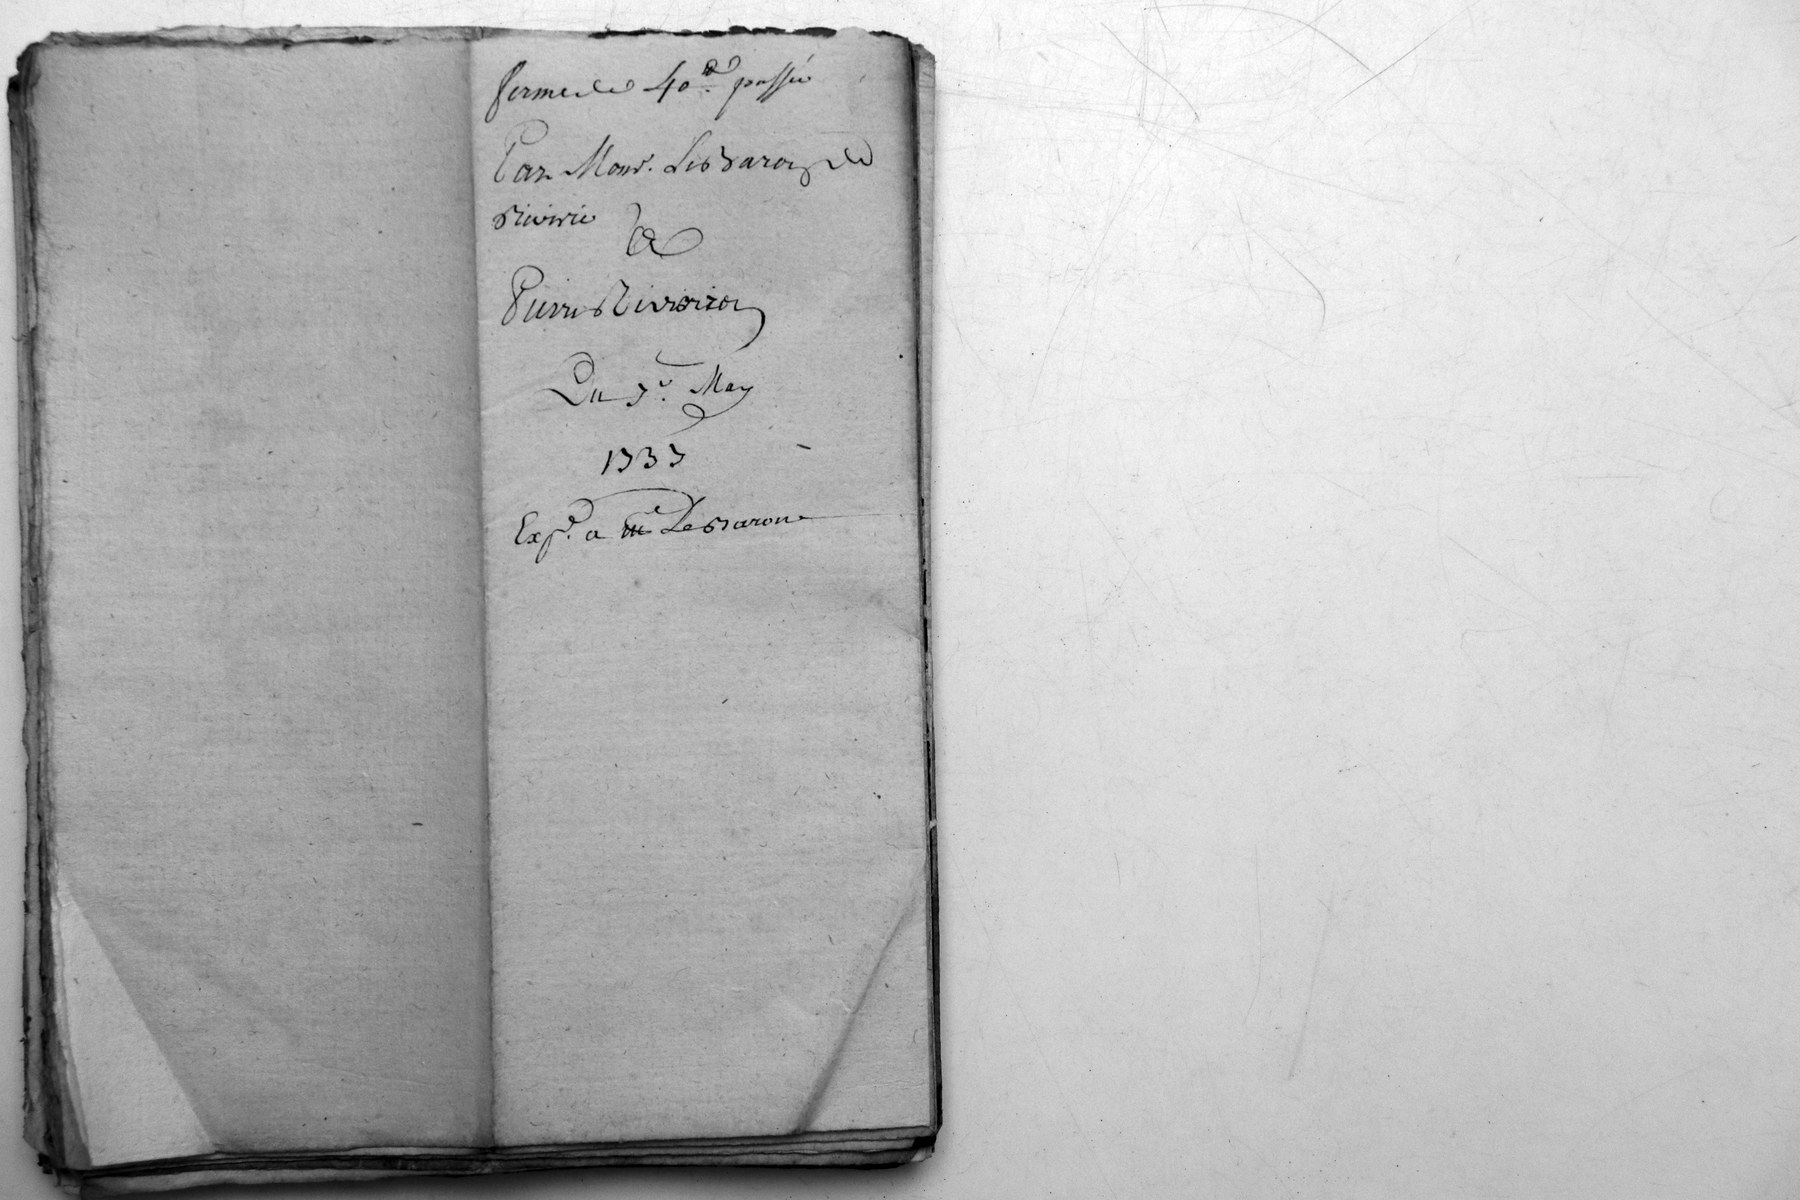 ferme de 40ᵗᵗ passée
Par Monsʳ. Le Baron de
Riverie
a
Pierre Rivoiron
Du 7ᵉ. May
1737
Expᵉ. a mʳ Le Baron